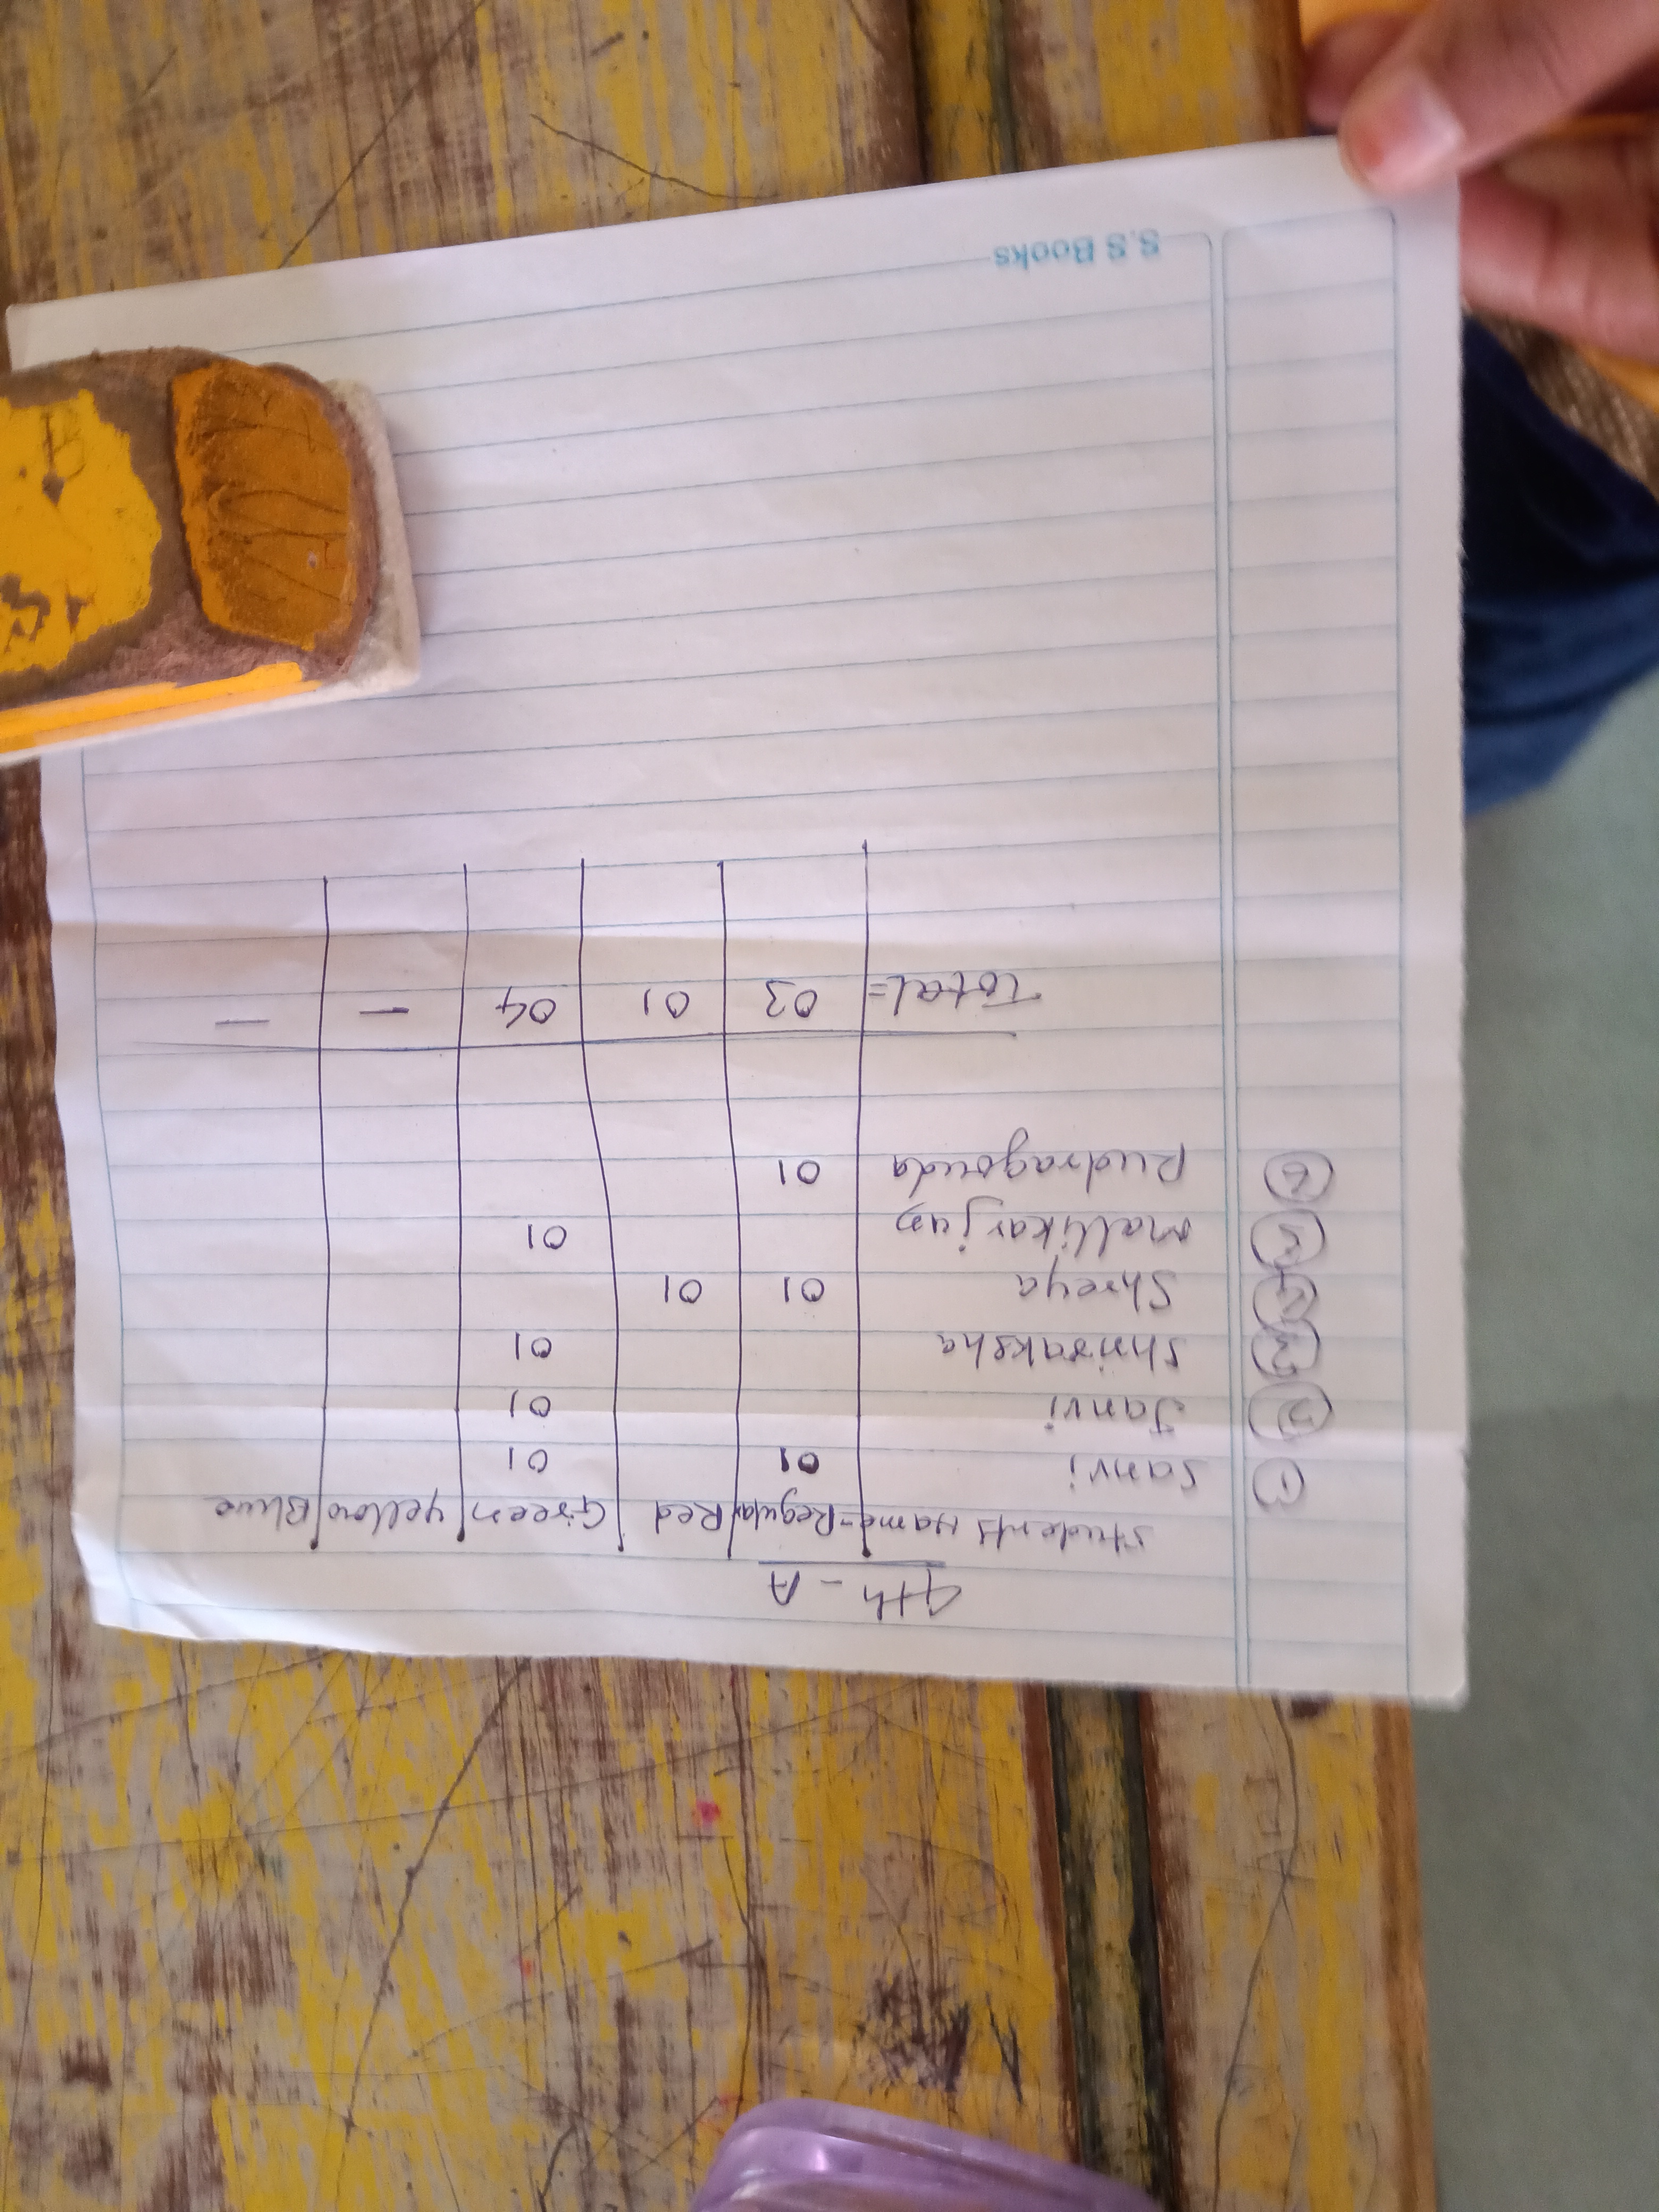 4th - A
Students Name- Regular Red Green yellow Blue
1 Sanvi 01 01
2 Janvi 01
3 Shriraksha 01
4 Shreya 01 01
5 Mallikarjun 01
6 Rudragouda 01
Total= 03 01 04 — —
S.S Books